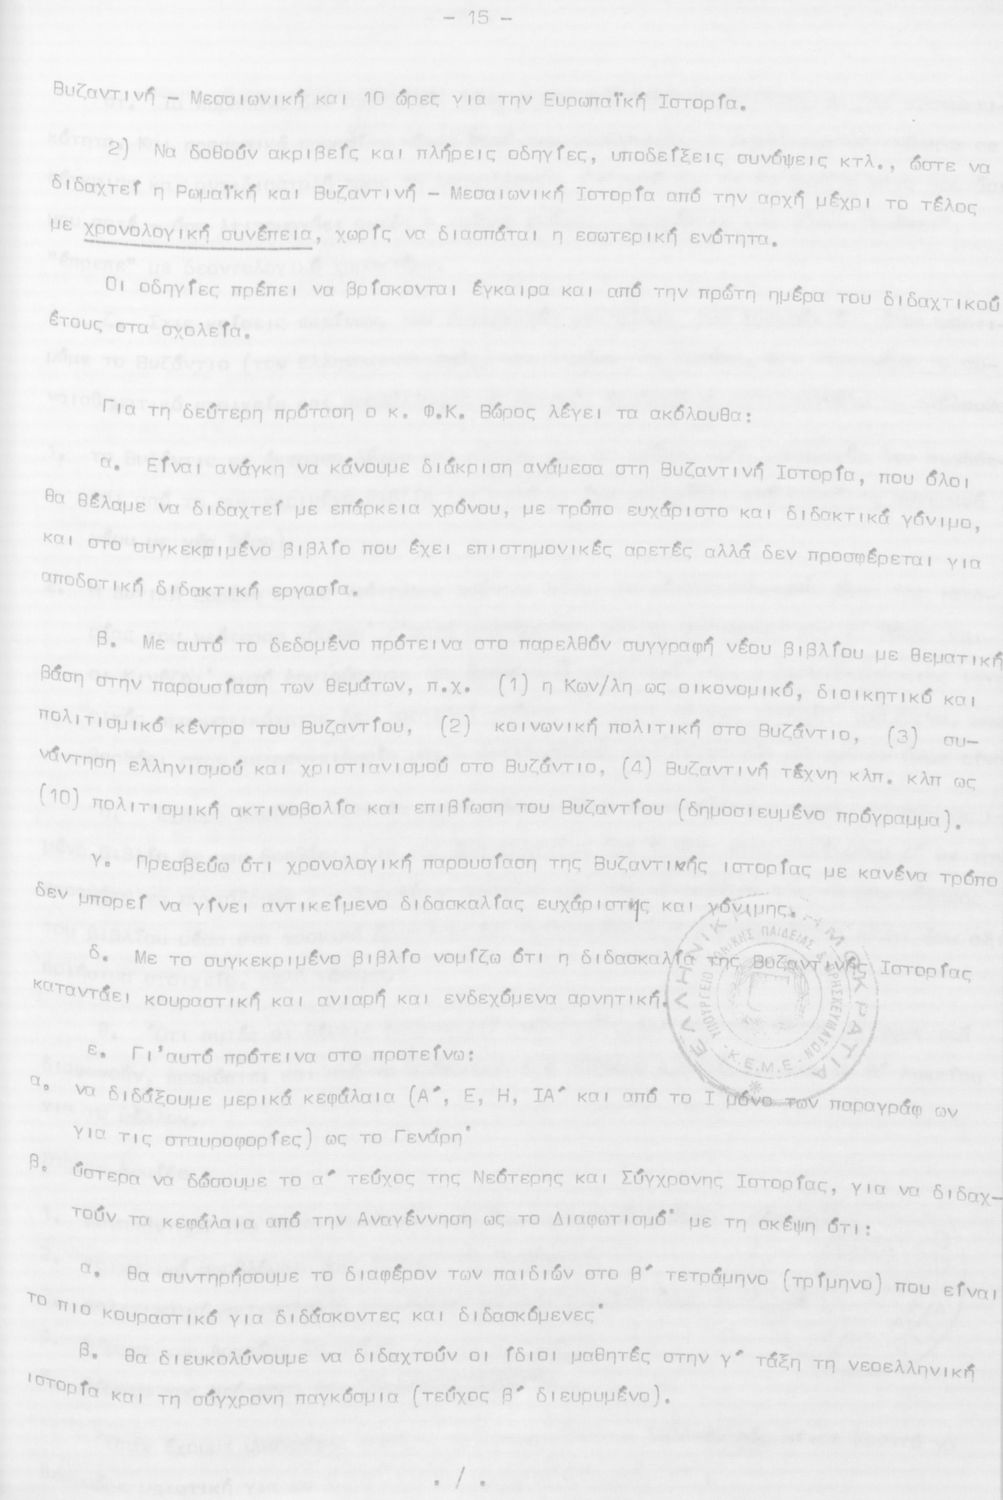 - 15 -
Βυζαντινή - Μεσαιωνική και 10 ώρες για την Ευρωπαϊκή Ιστορία.
2) Να δοθούν ακριβείς και πλήρεις οδηγίες, υποδείξεις συνόψεις κτλ., ώστε να
διδαχτεί η Ρωμαϊκή και Βυζαντινή - Μεσαιωνική Ιστορία από την αρχή μέχρι το τέλος
με χρονολογική συνέπεια, χωρίς να διασπάται η εσωτερική ενότητα.
Οι οδηγίες πρέπει να βρίσκονται έγκαιρα και από την πρώτη ημέρα του διδαχτικού
έτους στα σχολεία.
Για τη δεύτερη πρόταση ο κ. Φ.Κ. Βώρος λέγει τα ακόλουθα:
α. Είναι ανάγκη να κάνουμε διάκριση ανάμεσα στη Βυζαντινή Ιστορία, που όλοι
θα θέλαμε να διδαχτεί με επάρκεια χρόνου, με τρόπο ευχάριστο και διδακτικά γόνιμο,
και στο συγκεκριμένο βιβλίο που έχει επιστημονικές αρετές αλλά δεν προσφέρεται για
αποδοτική διδακτική εργασία.
β. Με αυτό το δεδομένο πρότεινα στο παρελθόν συγγραφή νέου βιβλίου με θεματική
βάση στην παρουσίαση των θεμάτων, π.χ. (1) η Κων/λη ως οικονομικό, διοικητικό και
πολιτισμικό κέντρο του Βυζαντίου, (2) κοινωνική πολιτική στο Βυζάντιο, (3) συ-
νάντηση ελληνισμού και χριστιανισμού στο Βυζάντιο, (4) Βυζαντινή τέχνη κλπ. κλπ ως
(10) πολιτισμική ακτινοβολία και επιβίωση του Βυζαντίου (δημοσιευμένο πρόγραμμα).
γ. Πρεσβεύω ότι χρονολογική παρουσίαση της Βυζαντινής ιστορίας με κανένα τρόπο
δεν μπορεί να γίνει αντικείμενο διδασκαλίας ευχάριστης και γόνιμης.
δ. Με το συγκεκριμένο βιβλίο νομίζω ότι η διδασκαλία της Βυζαντινής Ιστορίας
καταντάει κουραστική και ανιαρή και ενδεχόμενα αρνητική.
ΕΛΛΗΝΙΚΗ ΔΗΜΟΚΡΑΤΙΑ
ΥΠΟΥΡΓΕΙΟ ΕΘΝΙΚΗΣ ΠΑΙΔΕΙΑΣ & ΘΡΗΣΚΕΥΜΑΤΩΝ
Κ.Ε.Μ.Ε.
ε. Γι'αυτό πρότεινα στο προτείνω:
α. να διδάξουμε μερικά κεφάλαια (Α΄, Ε, Η, ΙΑ΄ και από το Ι μόνο των παραγράφ ων
για τις σταυροφορίες) ως το Γενάρη·
β. ύστερα να δώσουμε το α΄ τεύχος της Νεότερης και Σύγχρονης Ιστορίας, για να διδαχ-
τούν τα κεφάλαια από την Αναγέννηση ως το Διαφωτισμό· με τη σκέψη ότι:
α. θα συντηρήσουμε το διαφέρον των παιδιών στο β΄ τετράμηνο (τρίμηνο) που είναι
το πιο κουραστικό για διδάσκοντες και διδασκόμενες·
β. θα διευκολύνουμε να διδαχτούν οι ίδιοι μαθητές στην γ΄ τάξη τη νεοελληνική
ιστορία και τη σύγχρονη παγκόσμια (τεύχος β΄ διευρυμένο).
. / .